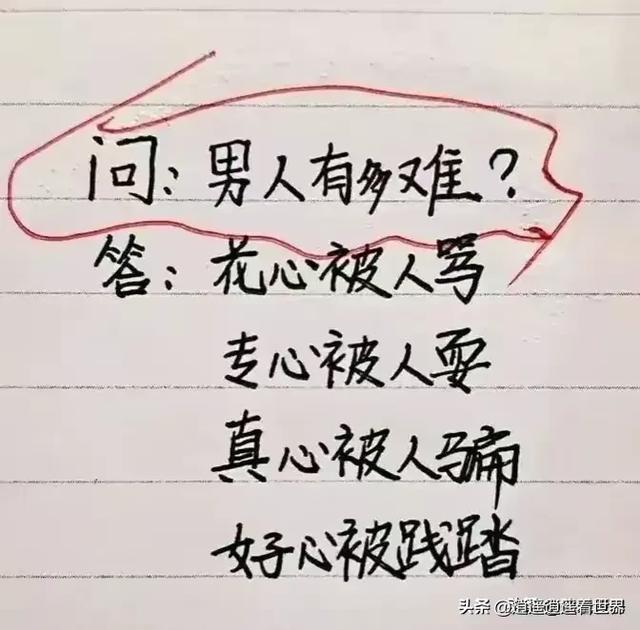 问：男人有多难？
答：花心被人骂
专心被人耍
真心被人骗
好心被践踏
头条 @逍遥逍遥看世界